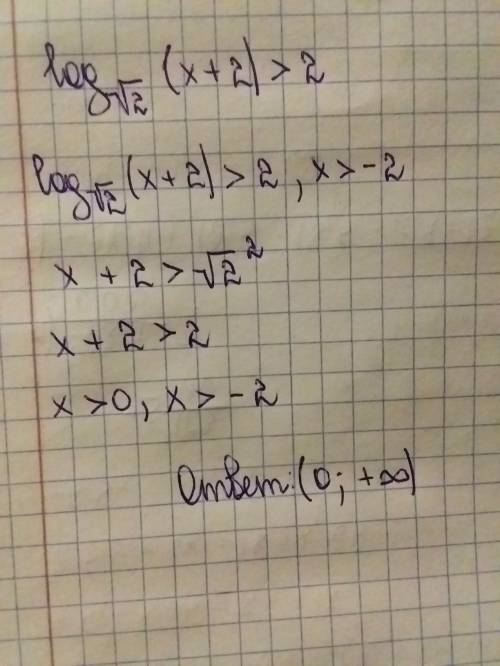 log√2 (x+2) > 2
log√2 (x+2) > 2 , x > -2
x + 2 > √2²
x + 2 > 2
x > 0, x > -2
Ответ: (0; +∞)